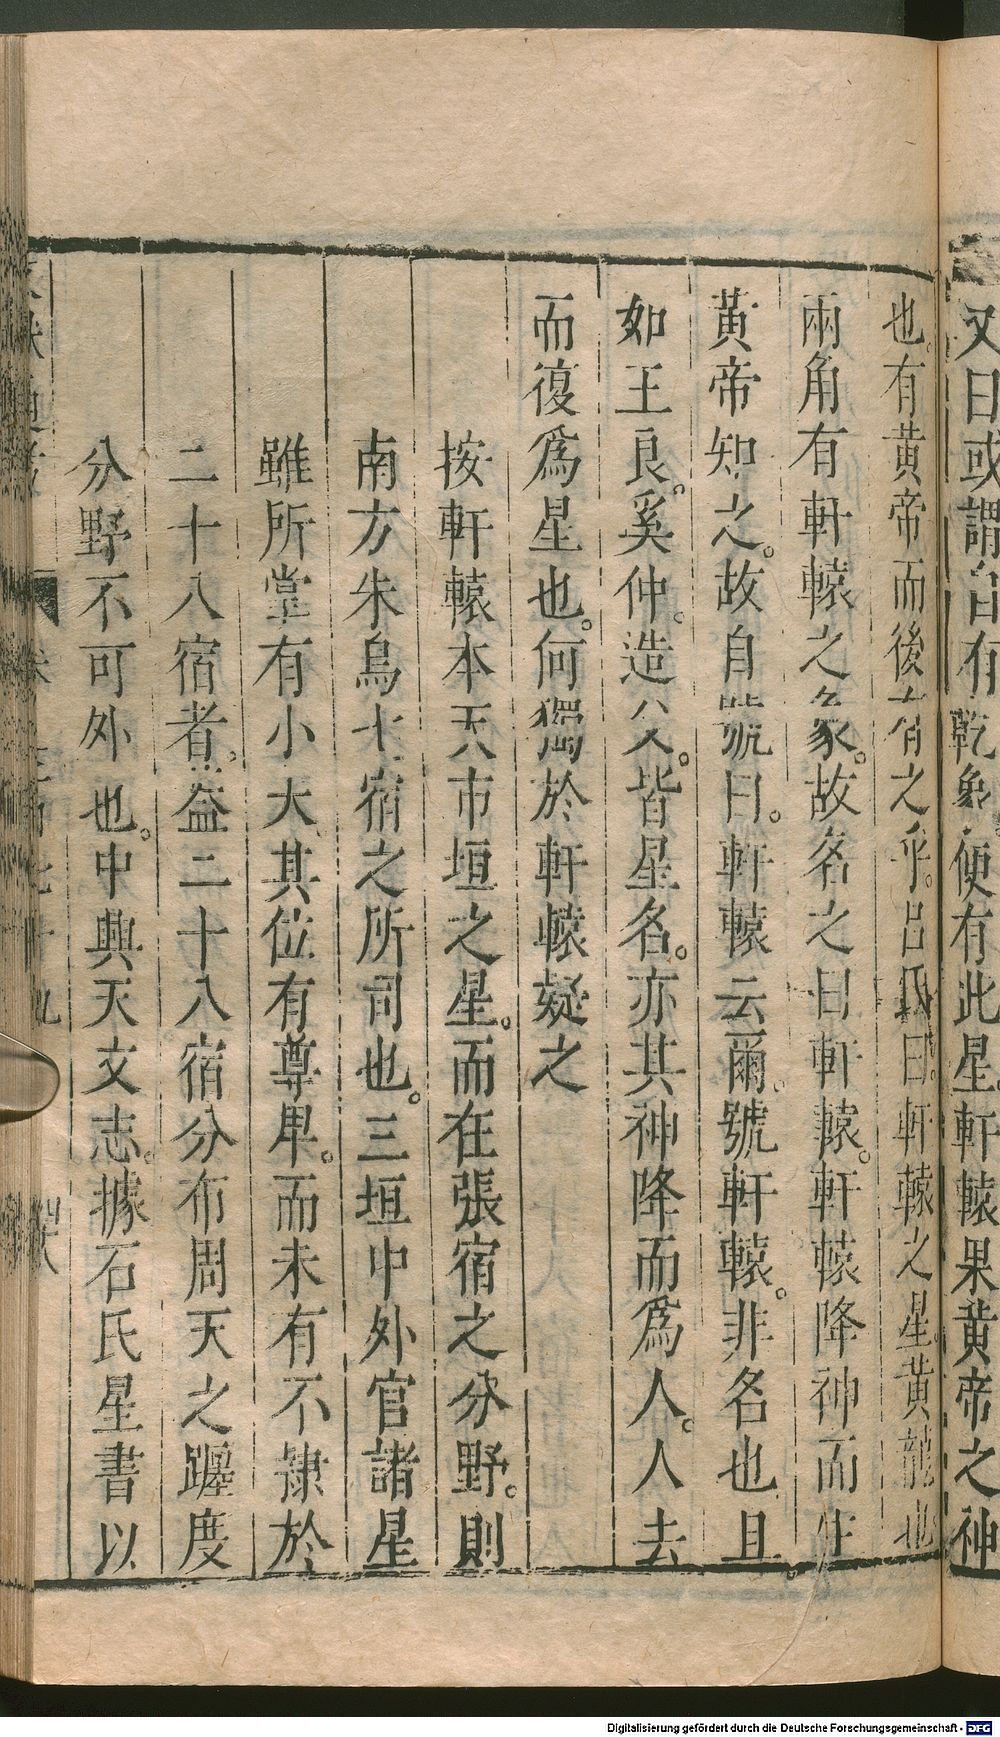 又曰或謂自有乾象便有此星軒轅果黃帝之神
也。有黃帝而後有之乎。呂氏曰。軒轅之星。黃龍也
兩角有軒轅之象。故名之曰軒轅。軒轅降神而生
黃帝知之。故自號曰。軒轅云爾。號軒轅。非名也且
如王良。奚仲。造父。皆星名。亦其神降而爲人。人去
而復爲星也。何獨於軒轅疑之
按軒轅本天市垣之星。而在張宿之分野。則
南方朱鳥七宿之所司也。三垣中外官諸星
雖所掌有小大其位有尊卑。而未有不隸於
二十八宿者。益二十八宿分布周天之躔度
分野不可外也。中興天文志。據石氏星書以
Digitalisierung gefördert durch die Deutsche Forschungsgemeinschaft - DFG